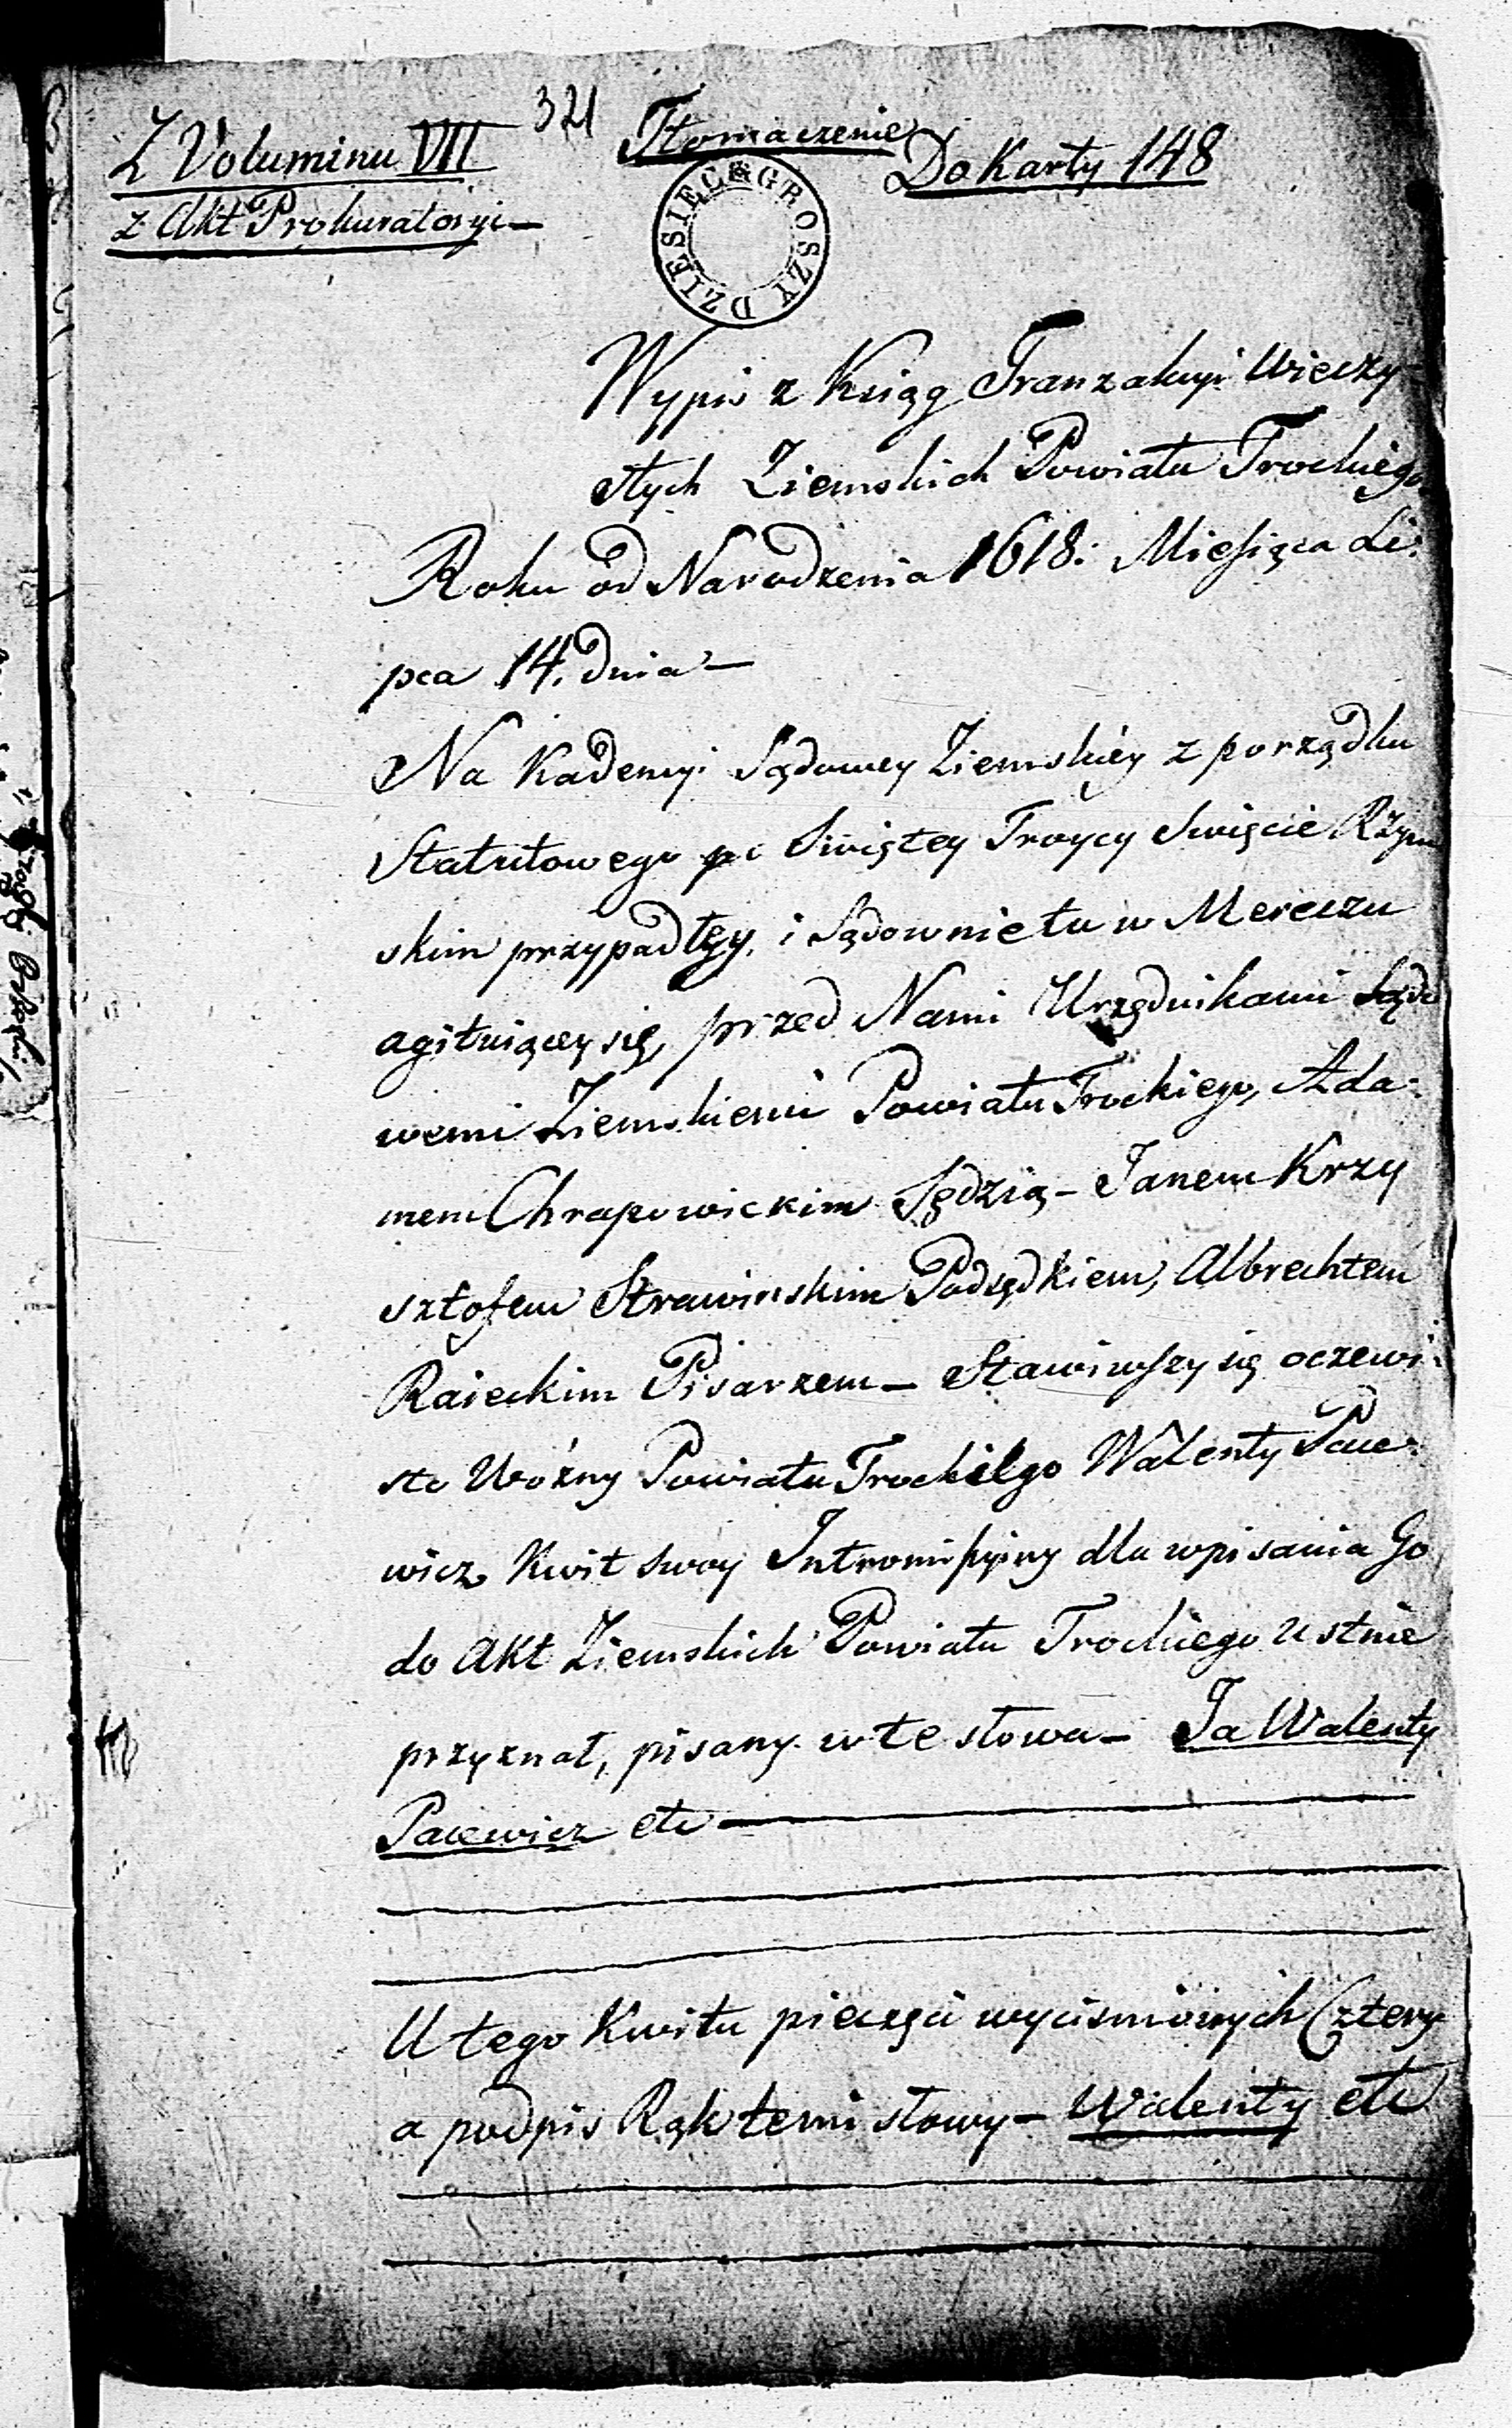 321
Tłomaczenie
Z Voluminu VII
z Akt Prokuratoryi—
Do Karty 148
DZIESIĘĆ GROSZY
Wypis z Ksiąg Tranzakcyi Wieczy
stych Ziemskich Powiatu Trockiego
Roku od Narodzenia 1618: Miesiąca Li:
pca 14. dnia—
Na Kadencyi Sądowey Ziemskiéy z porządku
Statutowego po Swiętey Troycy Swięcie Rzym
skim przypadłéy, i Sądownie tu w Mereczu
agituiącey się, przed Nami Urzędnikami Sądo
wemi Ziemskiemi Powiatu Trockiego, Ada:
mem Chrapowickim Sędzią – Janem Krzy
sztofem Strawinskim Podsędkiem, Albrechtem
Raieckim Pisarzem – Stawiwszy się oczewi:
sto Woźny Powiatu Trockiego Walenty Pace:
wicz Kwit swoy Intromissyiny dla wpisania Go
do Akt Ziemskich Powiatu Trockiego ustnie
przyznał, pisany w te słowa – Ja Walenty
Pacewicz etc —
U tego Kwitu pieczęci wyciśnionych Cztery
a podpis Rąk temi słowy – Walenty etc